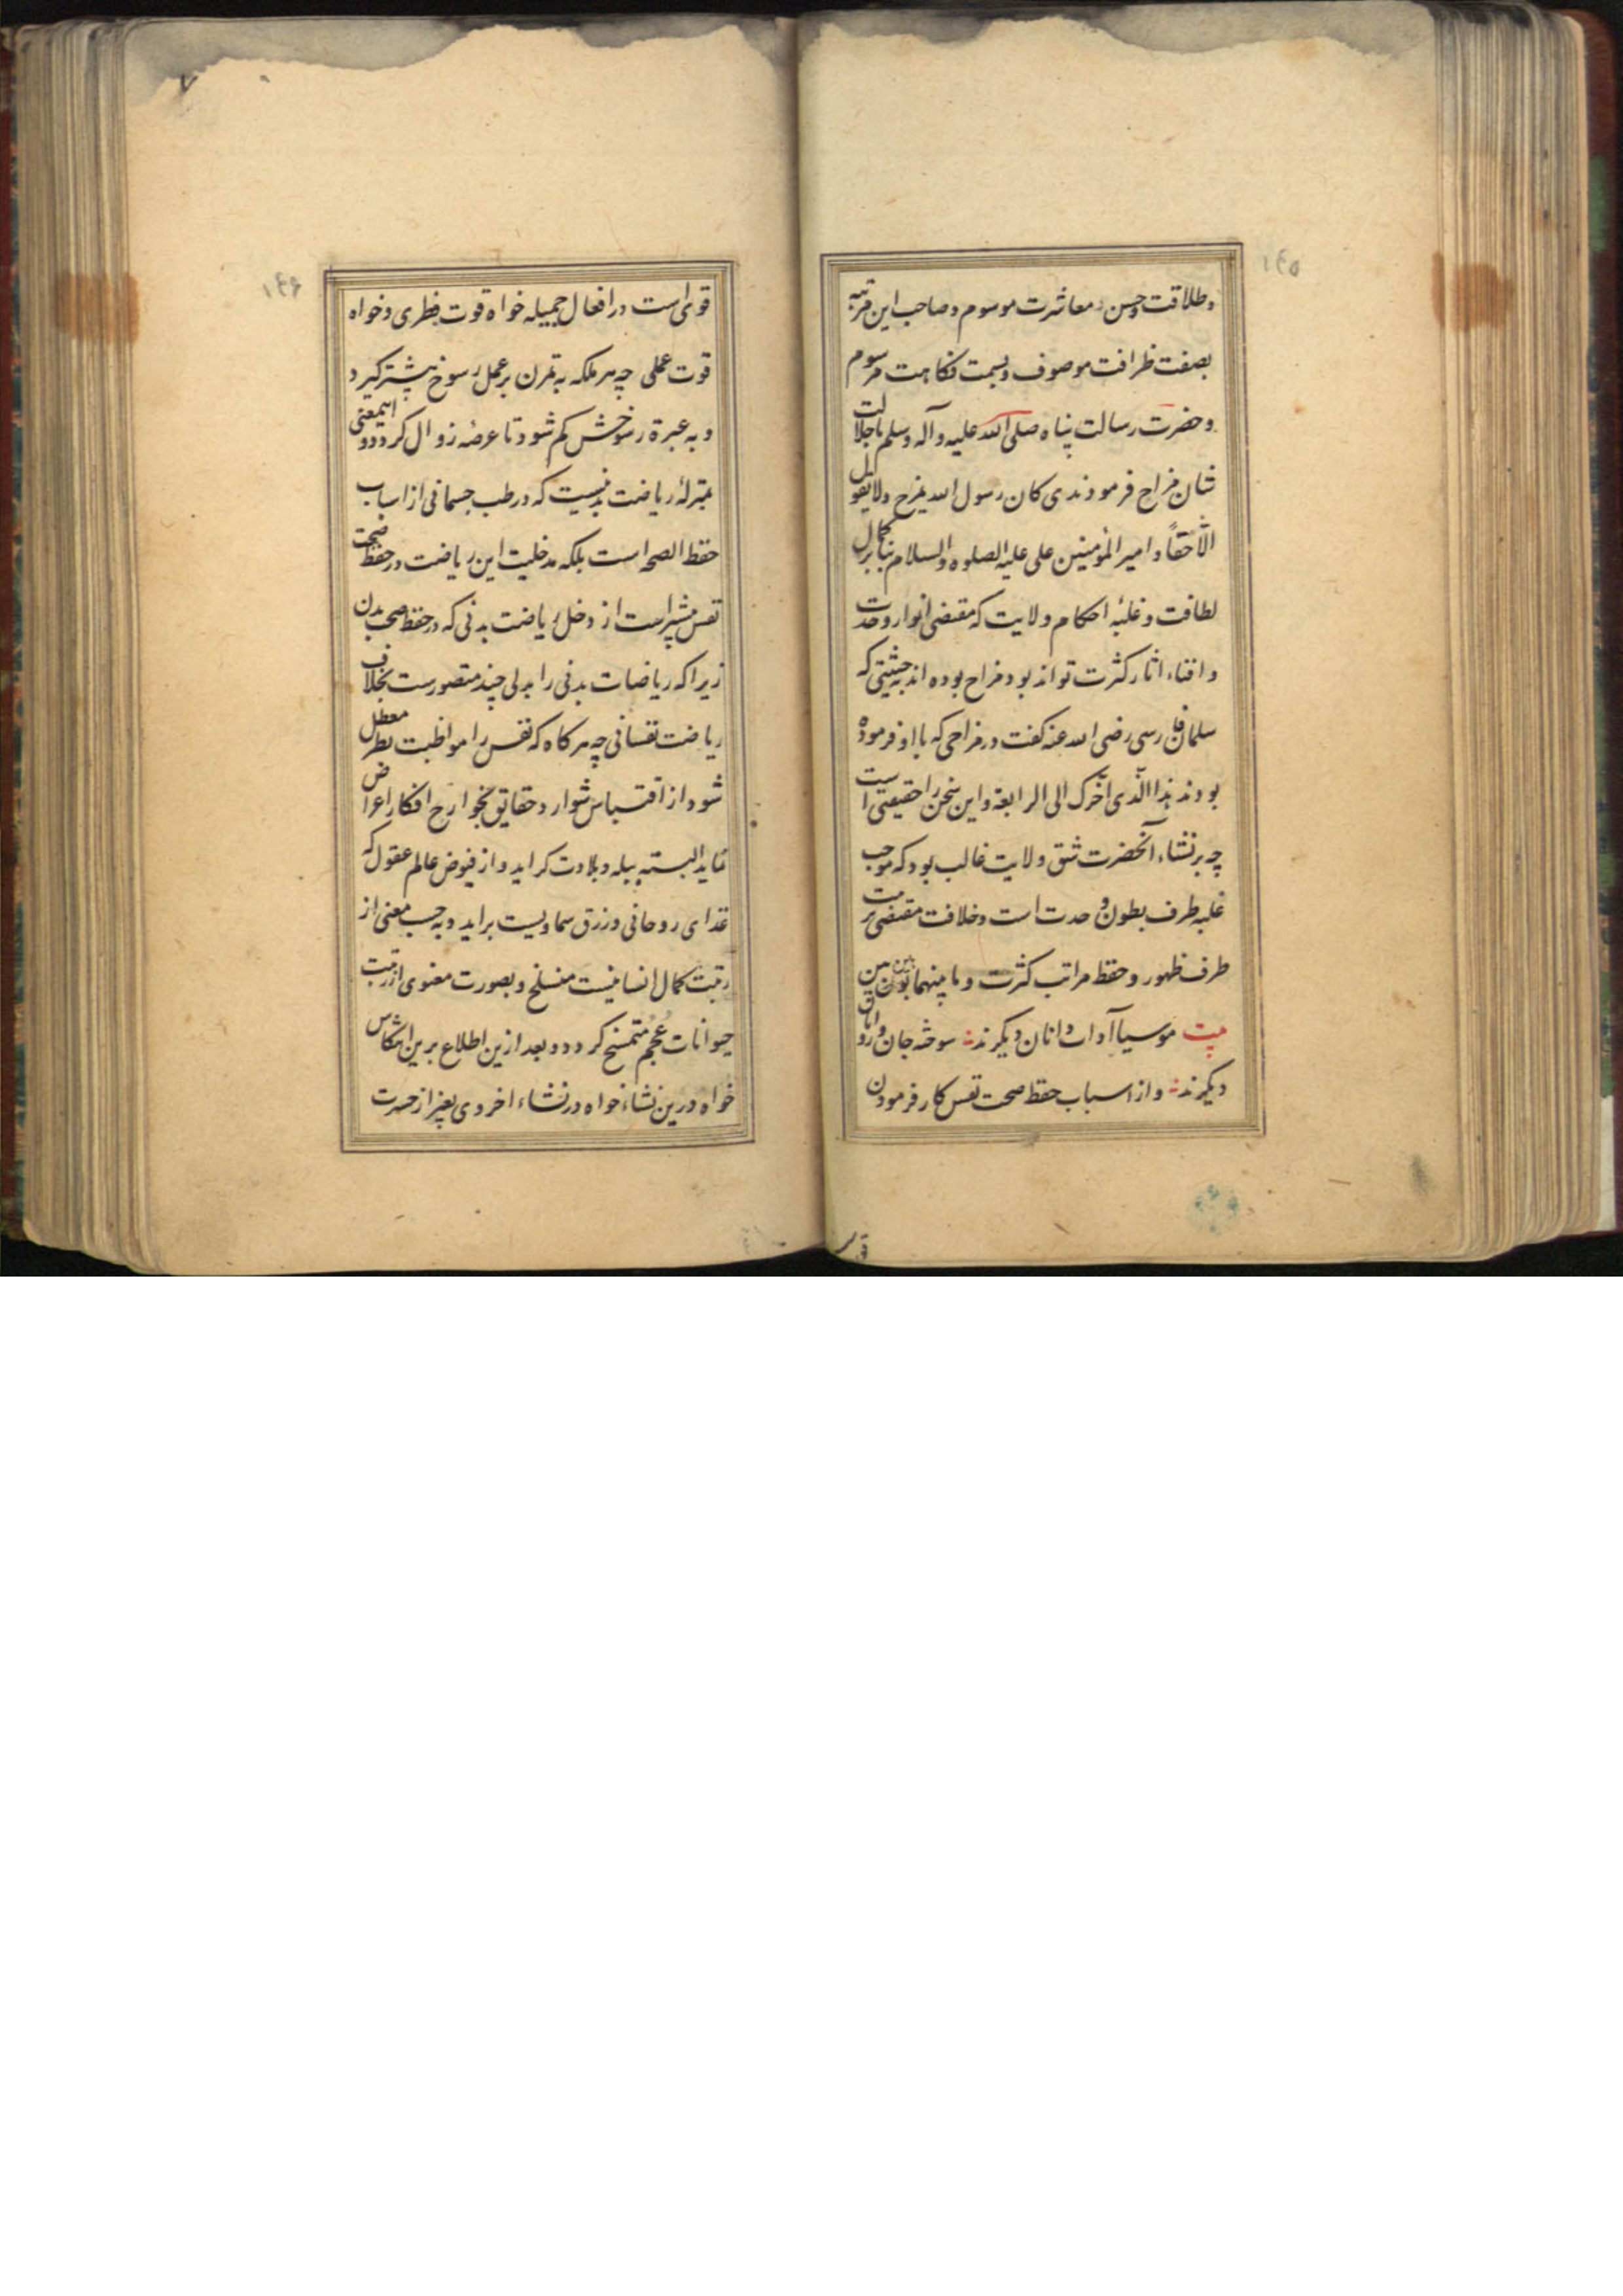 ۱۴۵
و طلاقت و حسن معاشرت موسوم و صاحب این مرتبه
بصفت ظرافت موصوف و بسمت فکاهت مرسوم
و حضرت رسالت پناه صلی الله علیه و آله وسلم با جلالت
شان مزاح فرمودندی کان رسول الله یمزح ولا یقول
الّا حقاً و امیر المؤمنین علی علیه الصلوه والسلام بنابر کمال
لطافت و غلبهٔ احکام ولایت که مقتضی انوار وحدت
و افناء اثار کثرت تواند بود مزاح بوده اند بحیثیتی که
سلمان فارسی رضی الله عنه کفت در مزاحی که با او فرموده
بودند هذا الّذی اخّرک الی الرابعة و این سخن را حقیقتی است
چه بر نشاء آنحضرت شق ولایت غالب بود که موجب
غلبه طرف بطون و حدت است و خلافت مقتضی
طرف ظهور و حفظ مراتب کثرت و ما بینهما بون بین
بیت موسیا آداب دانان دیکرند سوخته جان و روانان
دیکرند و از اسباب حفظ صحت نفس کار فرمودن
قو
۱۴۶
۷
قوی است در افعال جمیله خواه قوت نظری و خواه
قوت عملی چه هر ملکه به تمرن بر عمل رسوخ بیشتر کیرد
و به عبرة رسوخش کم شود تا عرضه زوال کردد و اینمعنی
بمنزلهٔ ریاضت بدنیست که در طب جسمانی از اسباب
حفظ الصحه است بلکه مدخلیت این ریاضت در حفظ صحت
نفس بیشتر است از دخل ریاضت بدنی که در حفظ صحت بدن
زیرا که ریاضات بدنی را بدلی چند متصورست بخلاف
ریاضت نفسانی چه هر کاه که نفس را مواظبت نظر معطل
شود از اقتباس شوارد حقایق بجوارح افکار اعراض
نماید البته ببله و بلادت کراید و از فیوض عالم عقول که
غذای روحانی و رزق سماویست براید و به حسب معنی از
رتبت کمال انسانیست منسلخ و بصورت معنوی از رتبت
حیوانات عُجُم متمسخ کردد و بعد ازین اطلاع برین انتکاس
خواه درین نشاء خواه در نشاء اخروی بغیر از حسرت